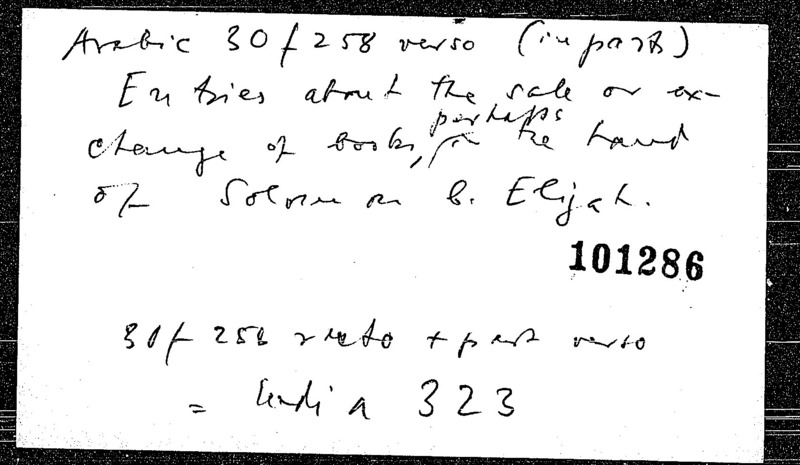 Arabic 30 f 258 verso (in part)
Entries about the sale or ex-
change of books, perhaps in the hand
of Solomon b. Elijah.
101286
30 f 258 recto + part verso
= India 323